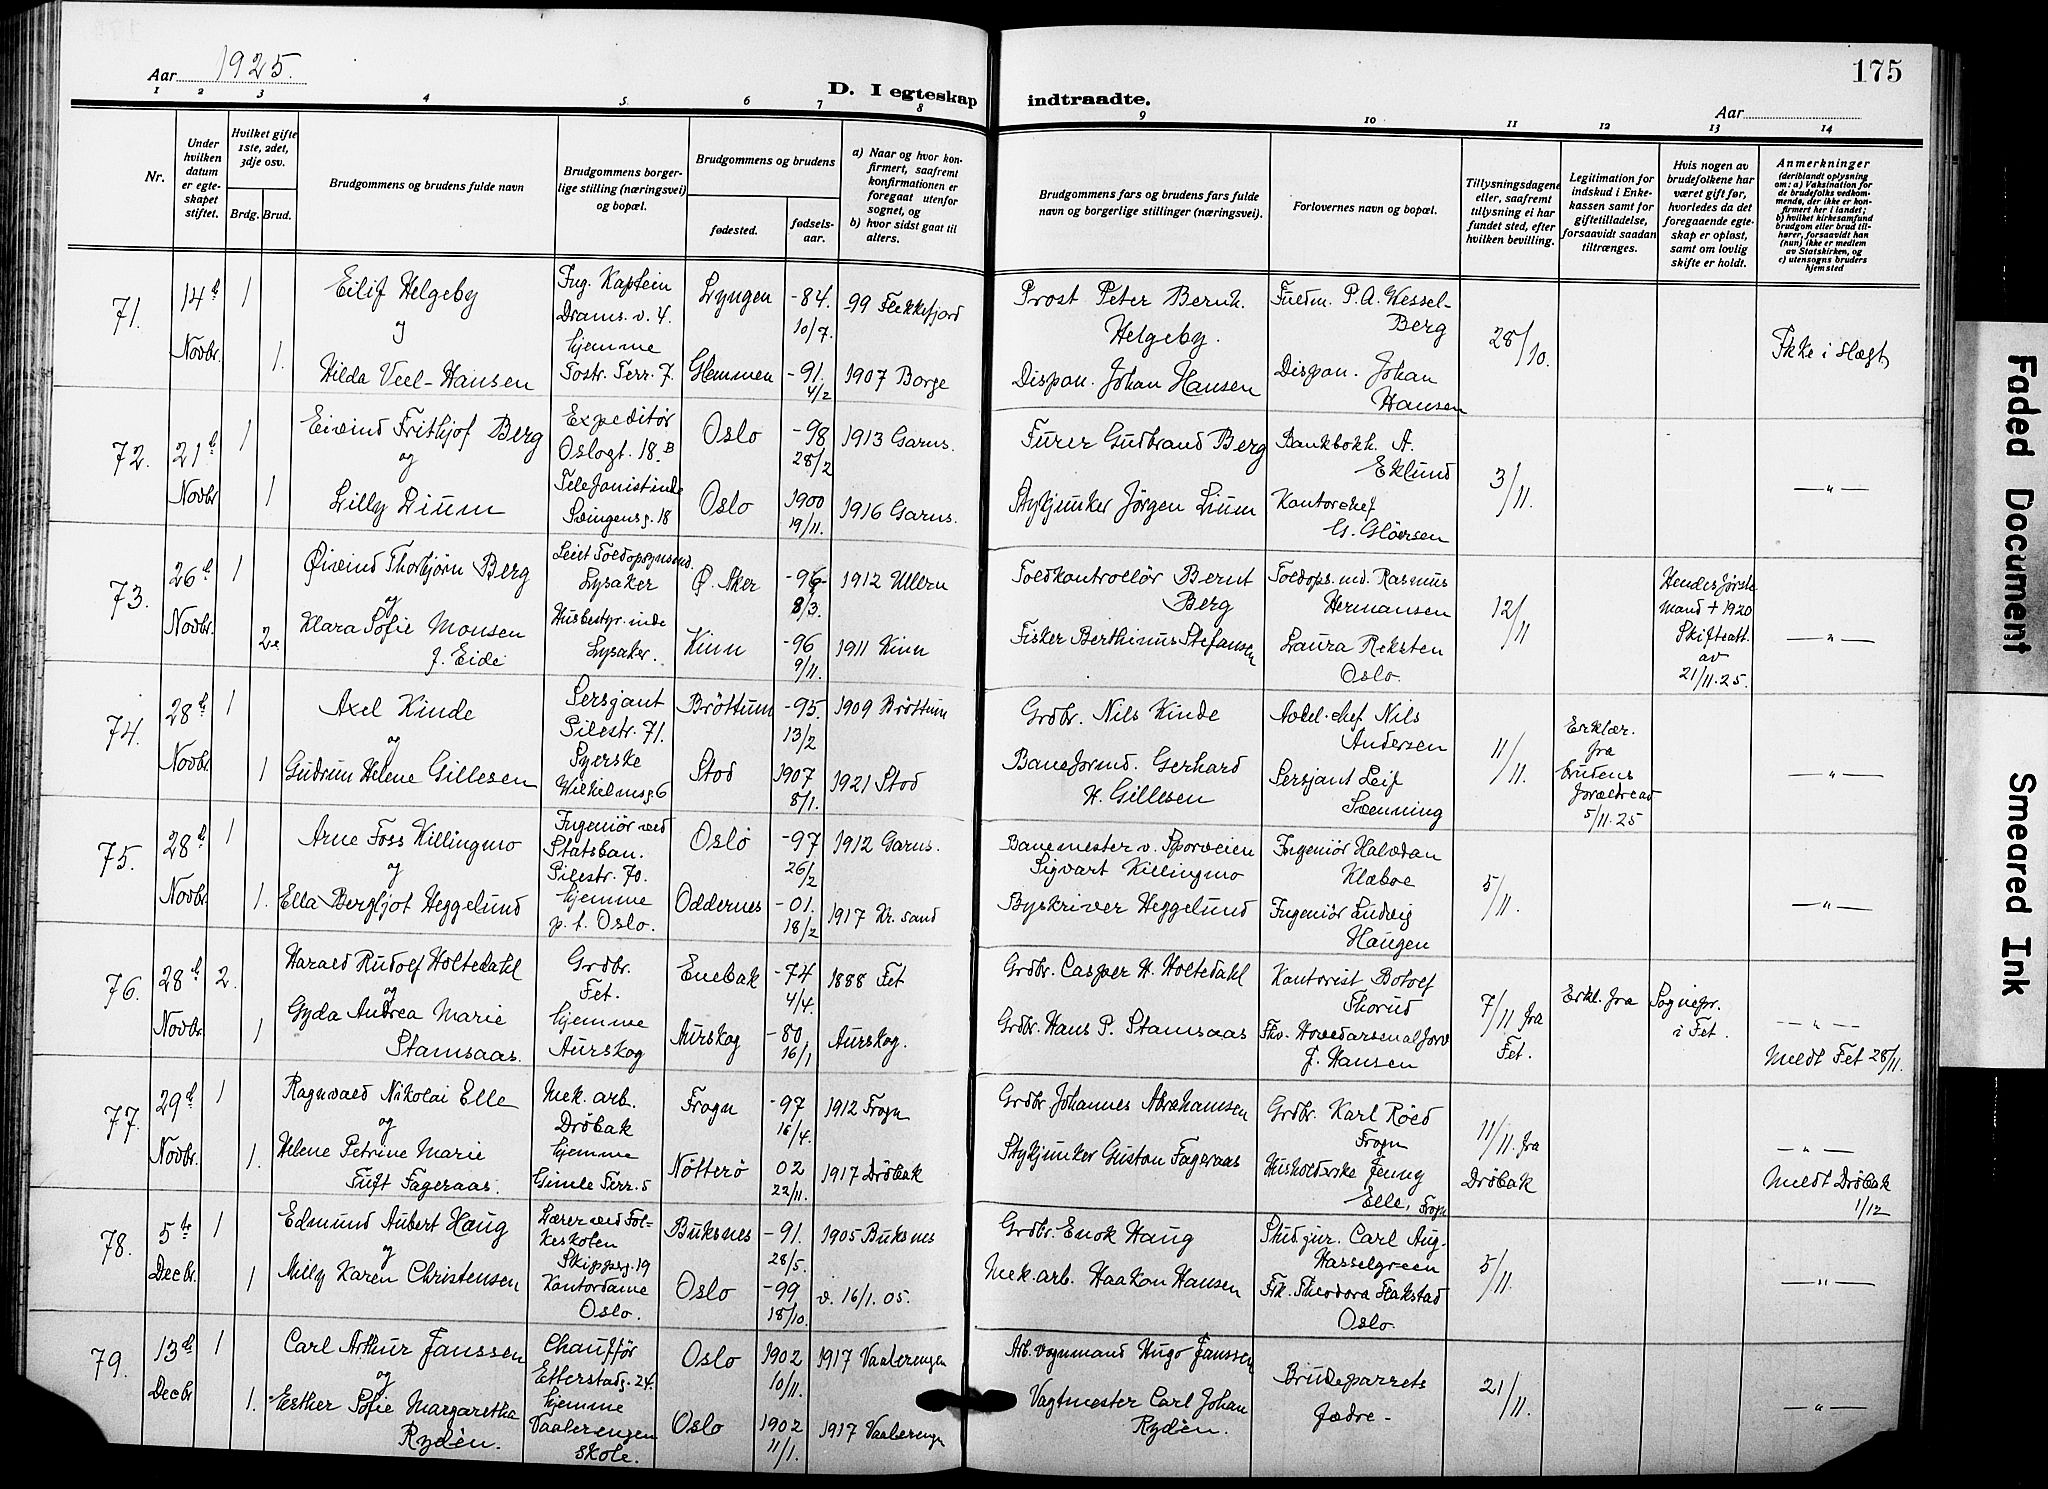 Aar 1925.
D. I egteskap
indtraadte.
Aar
175
1 2 3 4 5. 6 7 8
9 10 11 12 13 14
Nr.
Under hvilken datum er egteskapet stiftet.
Hvilket gifte 1ste, 2det, 3dje osv.
Brdg. Brud.
Brudgommens og brudens fulde navn
Brudgommens borgerlige stilling (næringsvei) og bopæl.
Brudgommens og brudens
fødested.
fødselsaar.
a) Naar og hvor konfirmert, saafremt konfirmationen er foregaaet utenfor sognet, og
b) hvor sidst gaat til alters.
Brudgommens fars og brudens fars fulde navn og borgerlige stillinger (næringsvei).
Forlovernes navn og bopæl.
Tillysningsdagene eller, saafremt tillysning ei har fundet sted, efter hvilken bevilling.
Legitimation for indskud i Enkekassen samt for giftetilladelse, forsaavidt saadan tiltrænges.
Hvis nogen av brudefolkene har været gift før, hvorledes da det foregaaende egteskap er opløst, samt om lovlig skifte er holdt.
Anmerkninger (deriblandt oplysning om: a) Vaksination for de brudefolks vedkommende, der ikke er konfirmert her i landet; b) hvilket kirkesamfund brudgom eller brud tilhører, forsaavidt han (hun) ikke er medlem av Statskirken, og c) utensogns bruders hjemsted
71. 14d Novbr. 1 Eilif Helgeby Ing. Kaptein Drams.v. 4. Lyngen -84. 10/7. 99 Flekkefjord Prost Peter Bernh. Helgeby. Fuldm. P. A. Wesselberg 28/10. Ikke i slegt
og
1. Hilda Veel-Hansen hjemme Tostr. Terr. 7. Glemmen -91. 4/2 1907 Borge Dispon. Johan Hansen Dispon. Johan Hansen
72. 21d Novbr 1 Eivind Frithjof Berg Expeditør Oslogt. 18.B Oslo -98 28/2 1913 Garns. Furer Gudbrand Berg Bankbokh. A. Eklund 3/11. -"-
og
1 Lilly Lium Telefonistinde Svingensg. 18 Oslo 1900 19/11. 1916 Garns. Stykjunker Jørgen Lium Kontorchef G. Gløersen
73. 26d Novbr. 1 Øivind Thorbjørn Berg Leiet Toldopsynsmd. Lysaker Ø. Aker -96 8/3. 1912 Ullern Toldkontrollør Bernt Berg Toldops.md. Rasmus Hermansen 12/11 Hendes første mand + 1920 Skifteatt. av 21/11.25. -"-
og
2e Klara Sofie Monsen f. Eide Husbestyr.inde Lysaker. Kinn -96 9/11. 1911 Kinn Fisker Berthinus Stefansen Laura Reksten Oslo.
74. 28d Novbr. 1 Axel Kinde Sersjant Pilestr. 71. Brøttum -95. 13/2 1909 Brøttum Grdbr. Nils Kinde Avdel.chef Nils Andersen 11/11. Erklær. fra brudens forældre ad 5/11.25 -"-
og
1 Gudrun Helene Gillesen Syerske Wilhelmsg 6 Stod 1907 8/1. 1921 Stod Baneformd. Gerhard H. Gillesen Sersjant Leif Svenning
75. 28d Novbr 1 Arne Foss Killingmo Ingeniør ved Statsban. Pilestr. 70. Oslo -97 26/2 1912 Garns. Banemester v. Sporveien Sigvart Killingmo Ingeniør Halvdan Klæboe 5/11. -"-
og
1. Ella Bergljot Heggelund hjemme p. t. Oslo. Oddernes -01. 18/2 1917 Kr.sand Byskriver Heggelund Ingeniør Ludvig Haugen
76. 28d Novbr. 2. Harald Rudolf Holtedahl Grdbr. Fet. Enebak -74 4/4. 1888 Fet Grdbr. Casper H. Holtedahl Kontorist Botolf Thorud 7/11 fra Fet. Erkl. fra Sognepr. i Fet. -"- Meldt Fet 28/11.
og
1 Gyda Andrea Marie Stamsaas. hjemme Aurskog Aurskog -80 16/1 Aurskog. Grdbr. Hans P. Stamsaas Fhv. Hovedarsenalforv J. Hansen
77. 29d Novbr. 1 Ragnvald Nikolai Elle Mek. arb. Drøbak Frogn -97 16/4. 1912 Frogn Grdbr Johannes Abrahamsen Grdbr. Karl Røed Frogn 11/11. fra Drøbak -"- Meldt Drøbak 1/12
og
1. Helene Petrine Marie Tuft Fageraas. hjemme Gimle Terr. 5 Nøtterø 02 22/11. 1917 Drøbak Stykjunker Gustav Fageraas Husholderske Jenny Elle, Frogn
78. 5te Decbr. 1 Edmund Aubert Haug Lærer ved Folkeskolen Skipperg. 19 Buksnes -91. 28/5. 1905 Buksnes Grdbr. Enok Haug Stud jur. Carl Aug. Hasselgreen 5/11. -"-
og
1 Milly Karen Christensen Kontordame Oslo. Oslo -99 18/10. v. 16/1. 05. Mek.arb. Haakon Hansen Frk. Theodora Flakstad Oslo.
79. 13de Decbr 1 Carl Arthur Janssen Chauffør Etterstadg. 24. Oslo 1902 10/11. 1917 Vaalerengen Arb. vognmand Hugo Janssen Brudeparrets fædre - 21/11. -"-
og
1. Esther Sofie Margaretha Rydèn. hjemme Vaalerengen skole. Oslo 1902 11/1. 1917 Vaalerengen Vagtmester Carl Johan Rydèn.
Faded Document
Smeared Ink